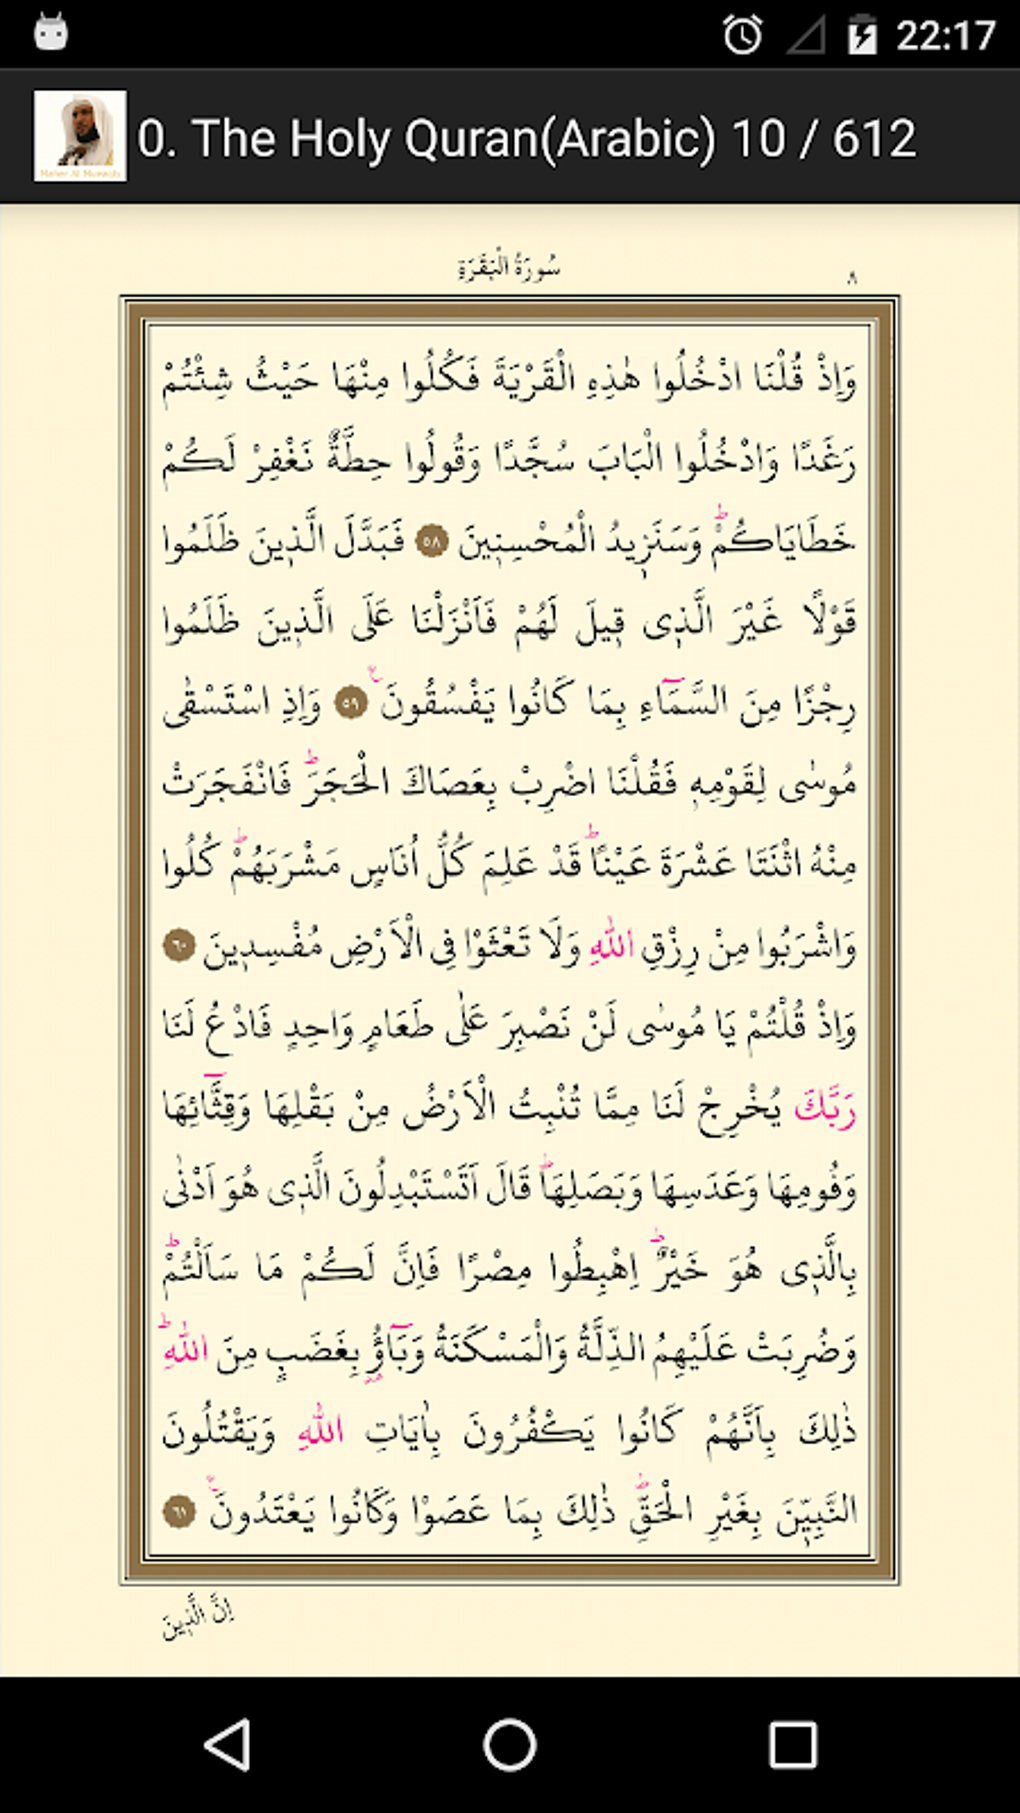 22:17
0. The Holy Quran(Arabic) 10 / 612
Maher Al Muaeqly
سُورَةُ الْبَقَرَةِ
٨
وَاِذْ قُلْنَا ادْخُلُوا هٰذِهِ الْقَرْيَةَ فَكُلُوا مِنْهَا حَيْثُ شِئْتُمْ
رَغَدًا وَادْخُلُوا الْبَابَ سُجَّدًا وَقُولُوا حِطَّةٌ نَغْفِرْ لَكُمْ
خَطَايَاكُمْۜ وَسَنَزٖيدُ الْمُحْسِنٖينَ ٥٨ فَبَدَّلَ الَّذٖينَ ظَلَمُوا
قَوْلًا غَيْرَ الَّذٖى قٖيلَ لَهُمْ فَاَنْزَلْنَا عَلَى الَّذٖينَ ظَلَمُوا
رِجْزًا مِنَ السَّمَٓاءِ بِمَا كَانُوا يَفْسُقُونَ ٥٩ وَاِذِ اسْتَسْقٰى
مُوسٰى لِقَوْمِهٖ فَقُلْنَا اضْرِبْ بِعَصَاكَ الْحَجَرَؕ فَانْفَجَرَتْ
مِنْهُ اثْنَتَا عَشْرَةَ عَيْنًاؕ قَدْ عَلِمَ كُلُّ اُنَاسٍ مَشْرَبَهُمْؕ كُلُوا
وَاشْرَبُوا مِنْ رِزْقِ اللّٰهِ وَلَا تَعْثَوْا فِى الْاَرْضِ مُفْسِدٖينَ ٦٠
وَاِذْ قُلْتُمْ يَا مُوسٰى لَنْ نَصْبِرَ عَلٰى طَعَامٍ وَاحِدٍ فَادْعُ لَنَا
رَبَّكَ يُخْرِجْ لَنَا مِمَّا تُنْبِتُ الْاَرْضُ مِنْ بَقْلِهَا وَقِثَّٓائِهَا
وَفُومِهَا وَعَدَسِهَا وَبَصَلِهَاؕ قَالَ اَتَسْتَبْدِلُونَ الَّذٖى هُوَ اَدْنٰى
بِالَّذٖى هُوَ خَيْرٌؕ اِهْبِطُوا مِصْرًا فَاِنَّ لَكُمْ مَا سَاَلْتُمْؕ
وَضُرِبَتْ عَلَيْهِمُ الذِّلَّةُ وَالْمَسْكَنَةُ وَبَٓاؤُ بِغَضَبٍ مِنَ اللّٰهِؕ
ذٰلِكَ بِاَنَّهُمْ كَانُوا يَكْفُرُونَ بِاٰيَاتِ اللّٰهِ وَيَقْتُلُونَ
النَّبِيّٖنَ بِغَيْرِ الْحَقِّؕ ذٰلِكَ بِمَا عَصَوْا وَكَانُوا يَعْتَدُونَ ٦١
اِنَّ الَّذٖينَ